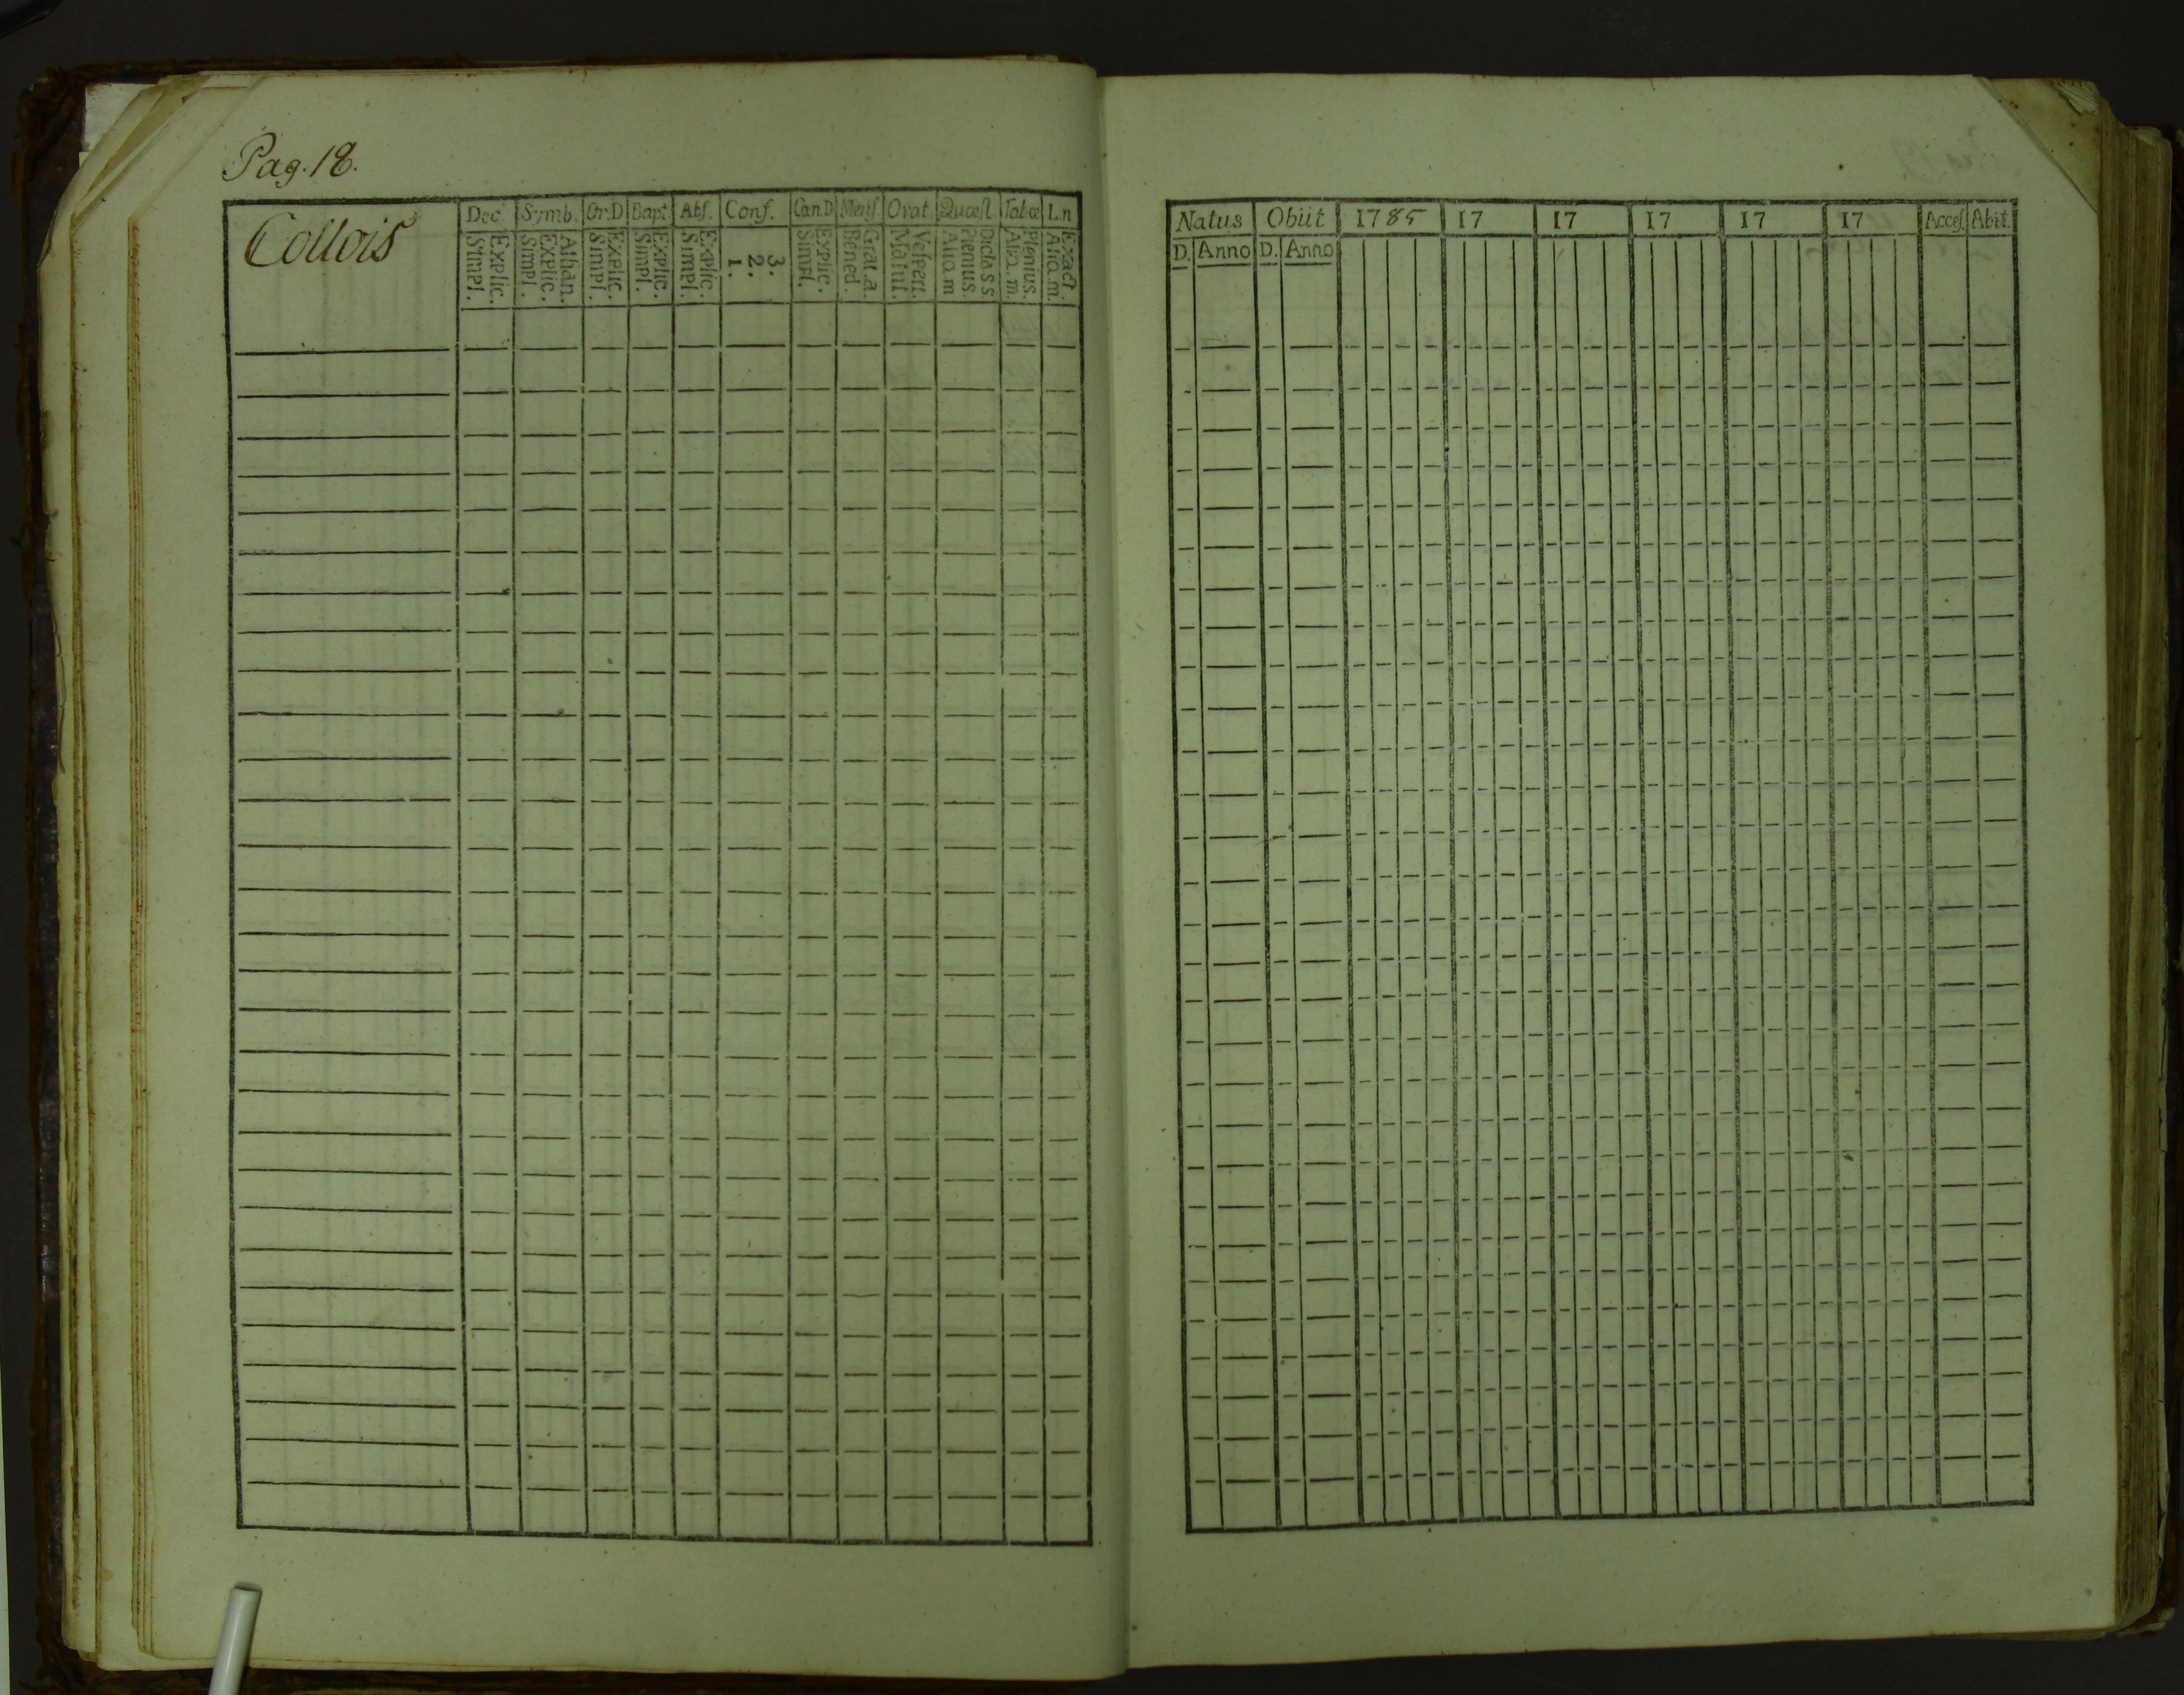 Pag. 18.
Collois
Dec Symb. Or.D Bapt. Abſ. Conf. Cœn.D Menſ Orat. Quæſt Tabæ L.n
Explic. Simpl. Athan. Explic. Simpl. Explic. Simpl. Explic. Simpl. Explic. Simpl. 3. 2. 1. Explic. Simpl. Grat.a. Bened. Veſpert. Matut. Dicta S S Plenius. Aliq.m Plenius. Aliq.m. Exact. Aliq.m.
Natus Obiit 1785 17 17 17 17 17 Acceſ. Abit.
D. Anno D. Anno